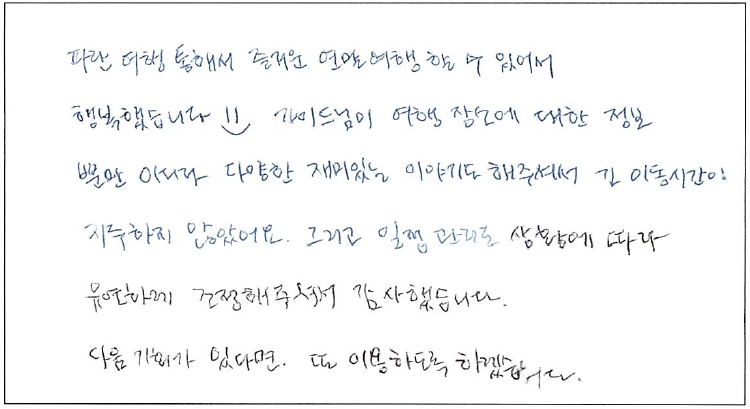 파란 여행 통해서 즐거운 연말여행 할 수 있어서
행복했습니다 !! 가이드님이 여행 장소에 대한 정보
뿐만 아니라 다양한 재미있는 이야기도 해주셔서 긴 이동시간이
지루하지 않았어요. 그리고 일정 관리도 상황에 따라
유연하게 조정해주셔서 감사했습니다.
다음 기회가 있다면. 또 이용하도록 하겠습니다.